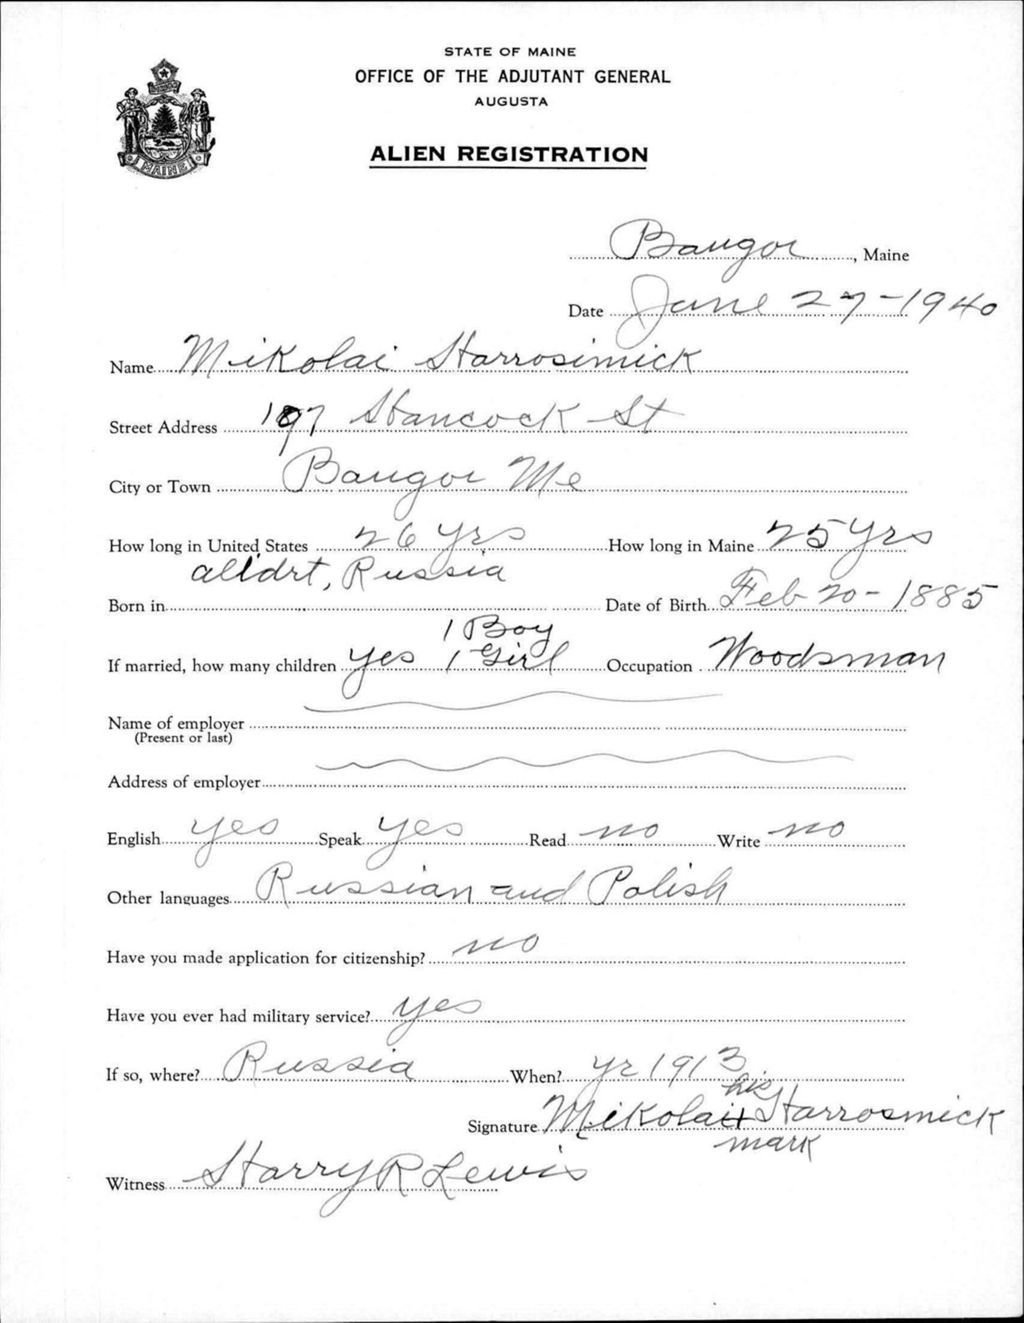 STATE OF MAINE
OFFICE OF THE ADJUTANT GENERAL
AUGUSTA
ALIEN REGISTRATION
MAINE
Bangor, Maine
Date June 27-1940
Name Mikolai Harrosimick
Street Address 197 Hancock St
City or Town Bangor Me
How long in United States 26 yrs How long in Maine 25 yrs
Born in Russia Date of Birth Feb 20-1885
1 Boy
If married, how many children yes 1 Girl Occupation Woodsman
Name of employer
(Present or last)
Address of employer
English yes Speak yes Read no Write no
Other languages Russian and Polish
Have you made application for citizenship? no
Have you ever had military service? yes
If so, where? Russia When? yr 1913
his
Signature Mikolai x Harrosmick
mark
Witness Harry R Lewis